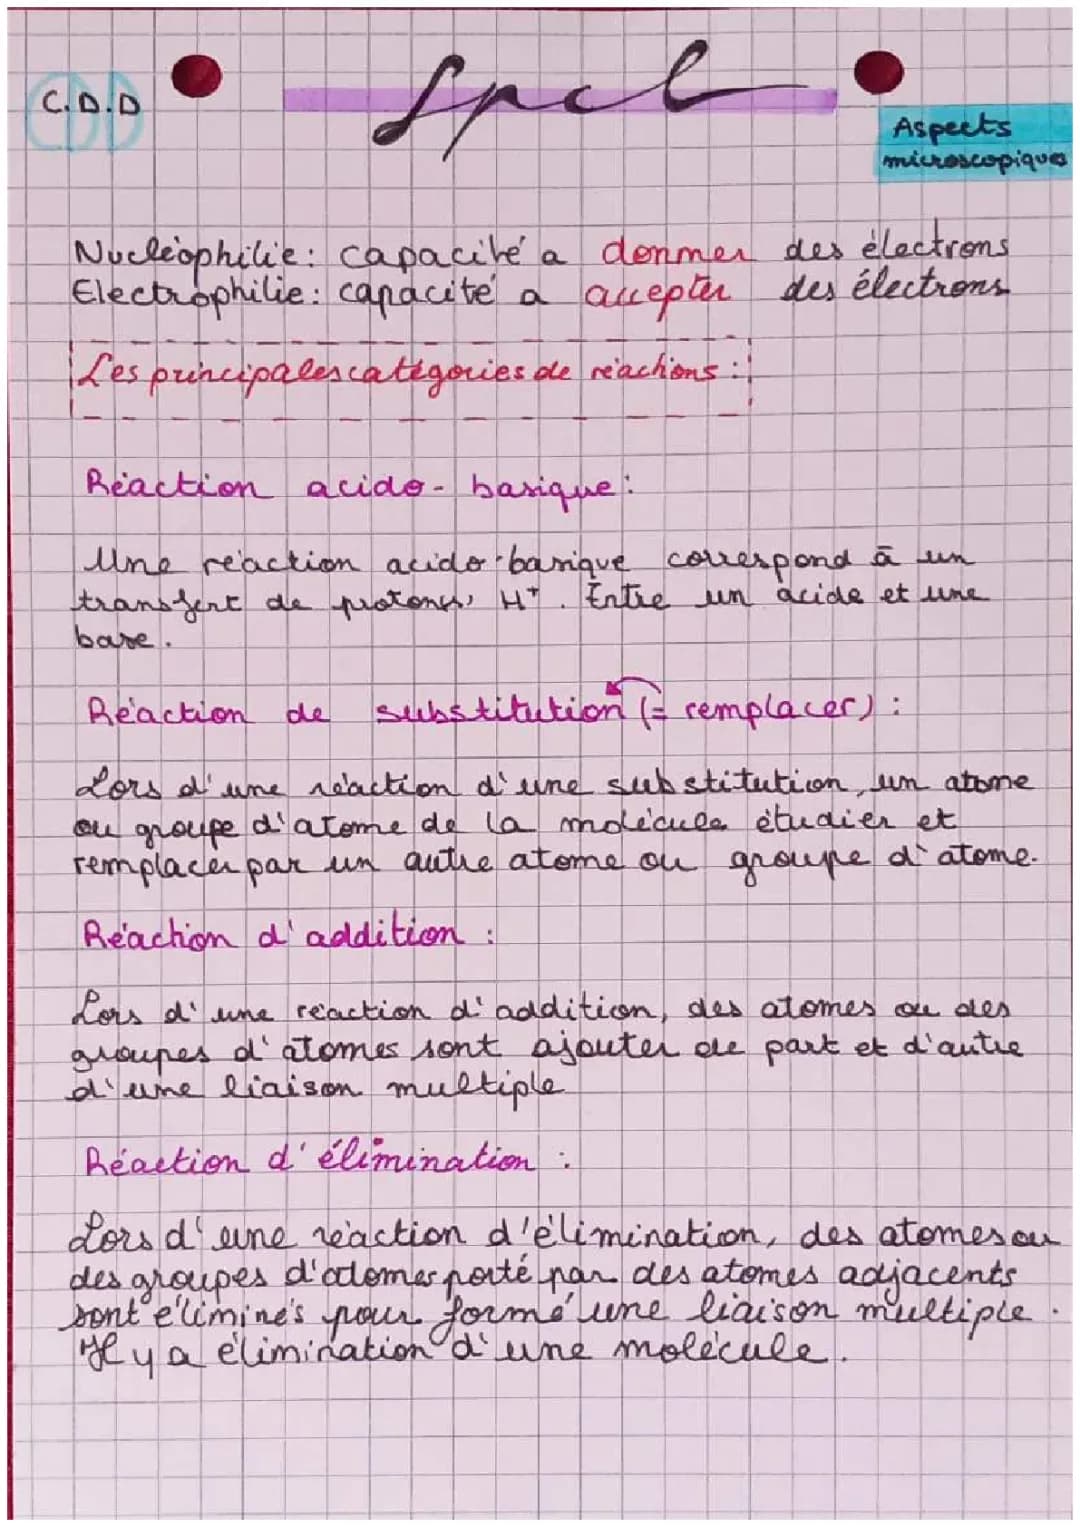 C.D.D
Spcl
Aspects
microscopiques
Nucléophilie: capacité a donner des électrons
Electrophilie: capacité a accepter des électrons
Les principales catégories de réactions :
Réaction acido-basique:
Une réaction acido-basique correspond à un
transfert de protons, H+. Entre un acide et une
base.
Réaction de substitution (= remplacer) :
Lors d'une réaction d'une substitution, un atome
ou groupe d'atome de la molécule étudier et
remplacer par un autre atome ou groupe d'atome.
Réaction d'addition :
Lors d'une réaction d'addition, des atomes ou des
groupes d'atomes sont ajouter de part et d'autre
d'une liaison multiple
Réaction d'élimination :
Lors d'une réaction d'élimination, des atomes ou
des groupes d'atomes porté par des atomes adjacents
sont éliminés pour formé une liaison multiple.
Il y a élimination d'une molécule.